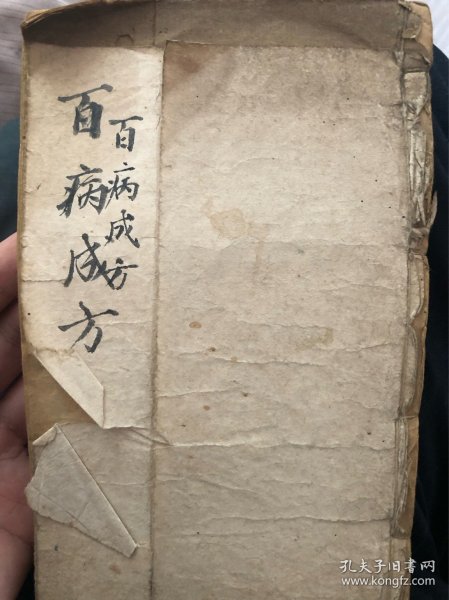 百病成方
百病成方
孔夫子旧书网
www.kongfz.com